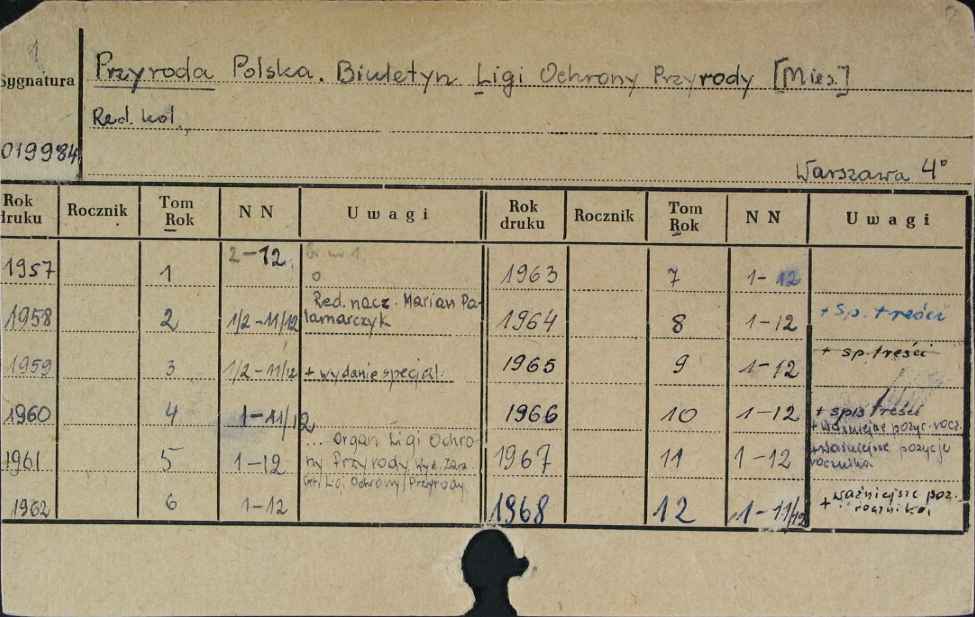 1
Sygnatura
Przyroda Polska. Biuletyn Ligi Ochrony Przyrody [Mies.]
Red. kol.
019984
Warszawa 4°
Rok druku Rocznik Tom Rok N N Uwagi Rok druku Rocznik Tom Rok N N Uwagi
1957 1 2-12 Br. nr 1. 1963 7 1-12
1958 2 1/2-11/12 Red. nacz. Marian Pa-
lamarczyk 1964 8 1-12 + Sp. treści
1959 3 1/2-11/12 + wydanie specjal. 1965 9 1-12 + sp. treści
1960 4 1-11/12 1966 10 1-12 + spis treści
+ ważniejsze pozyc. rocz.
1961 5 1-12 ... Organ Ligi Ochro-
ny Przyrody Wyd. Zarz. 1967 11 1-12 ważniejsze pozycje
rocznika
Gł. Ligi Ochrony Przyrody
1962 6 1-12 1968 12 1-11/12 + ważniejsze poz.
rocznika